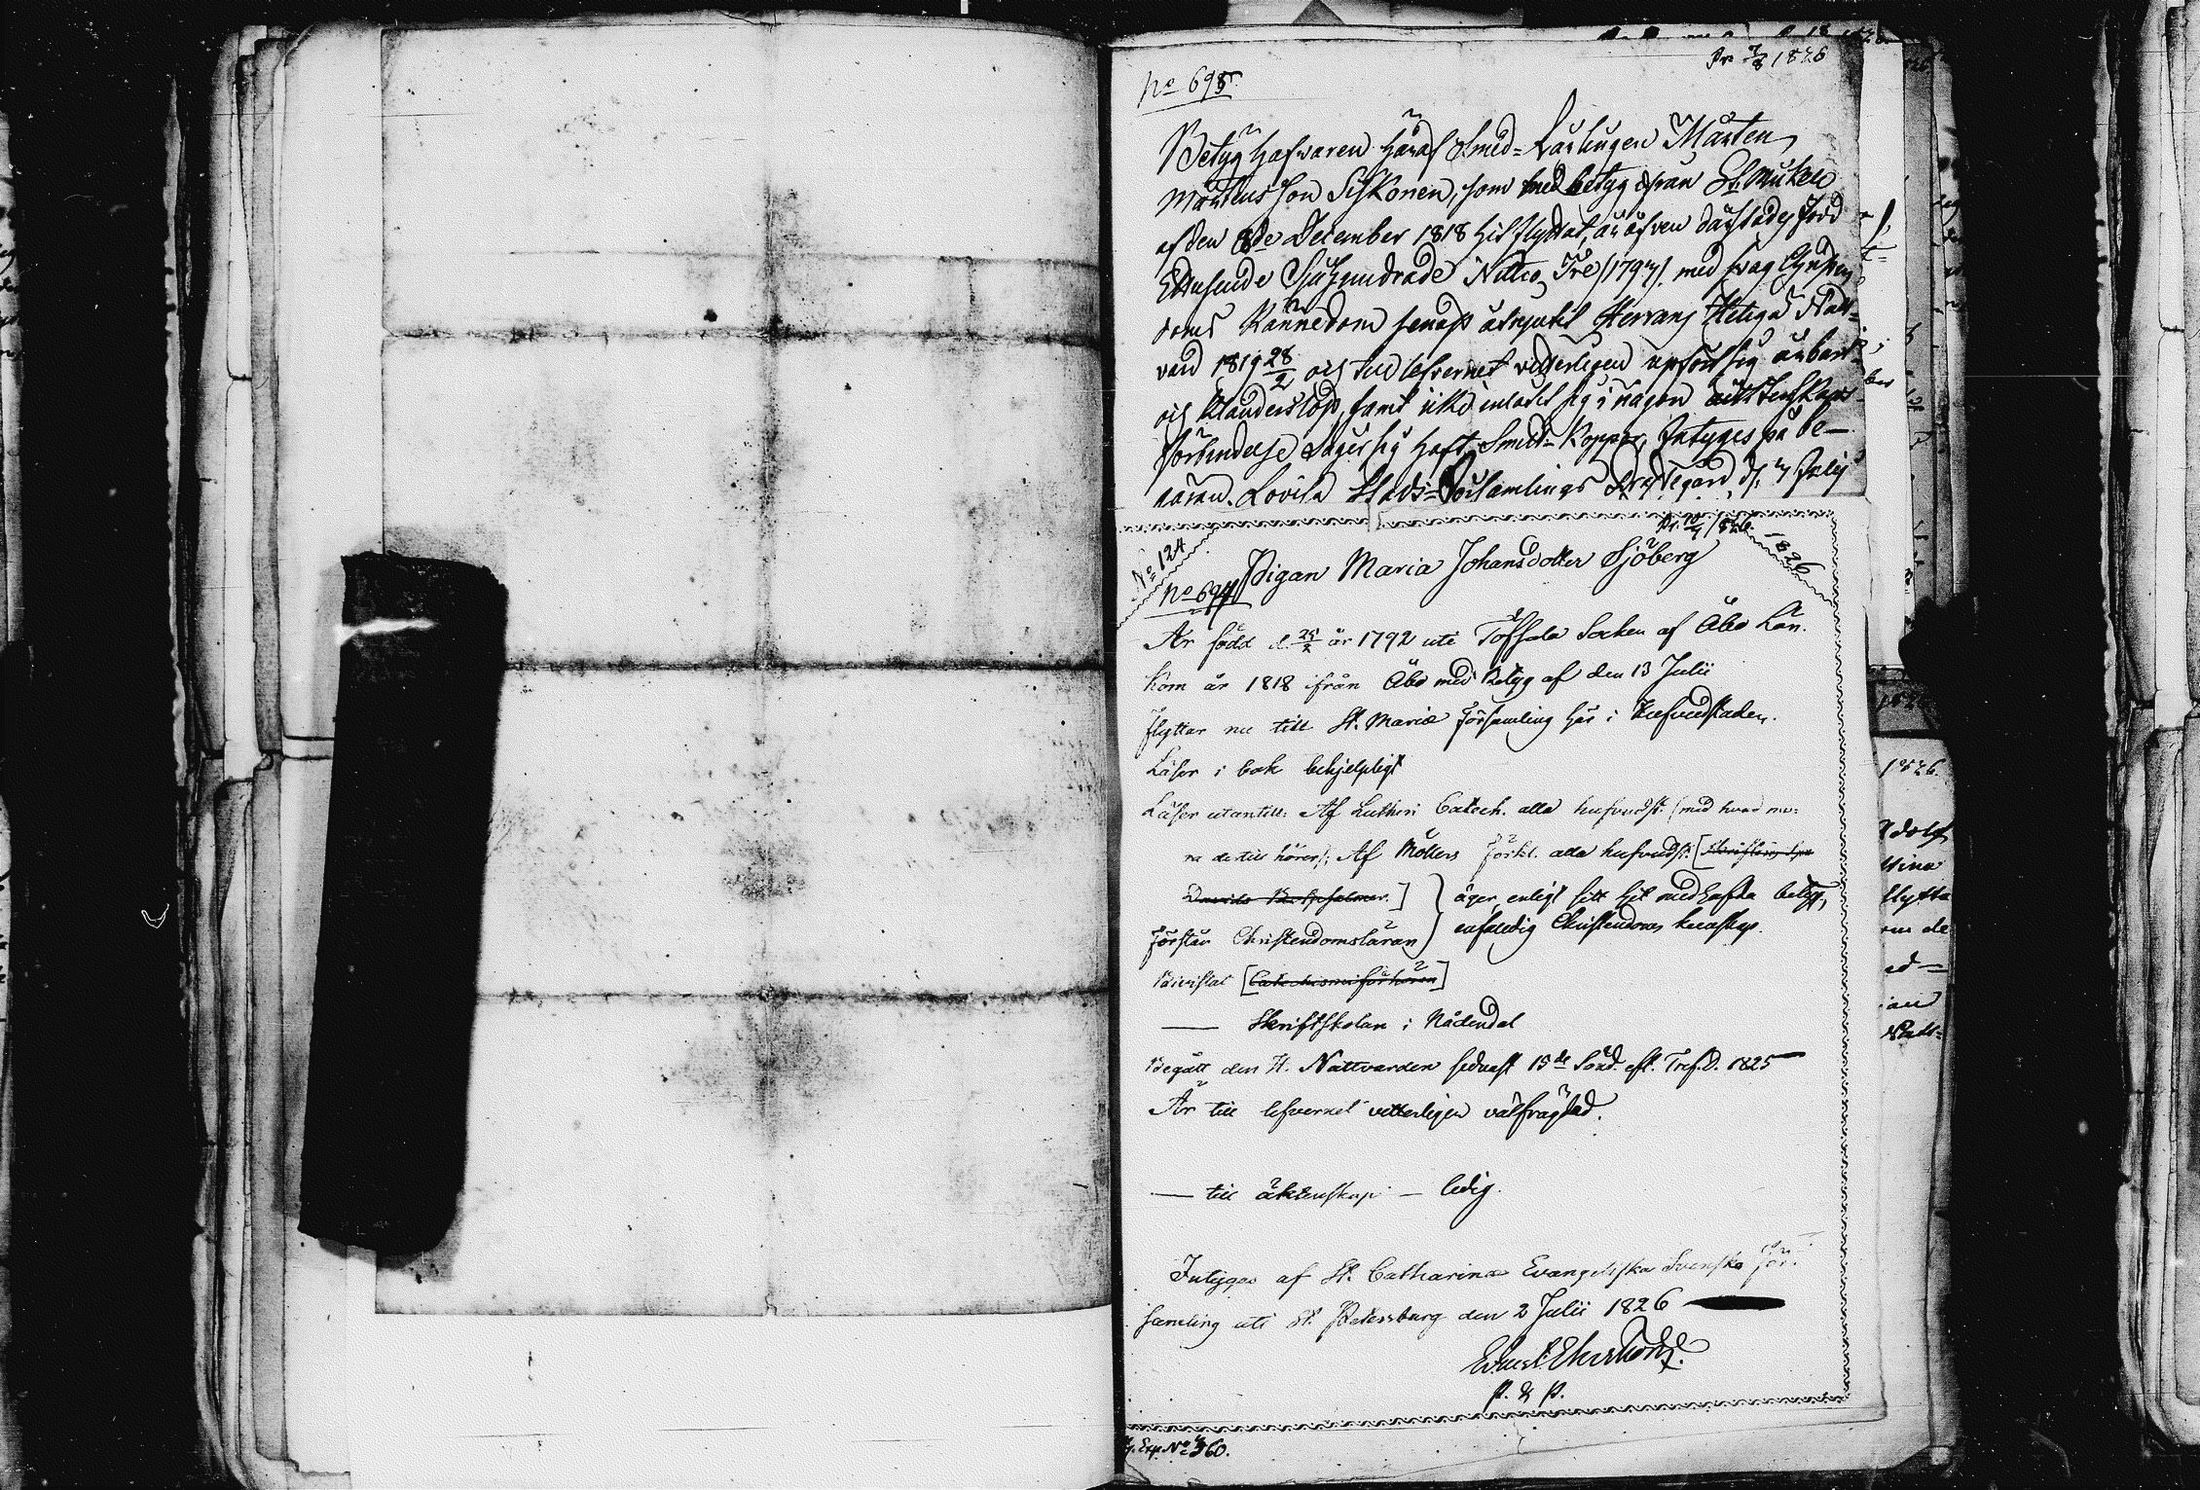 No 695.
Pr 7/8 1826
Betyg Hafvaren häraf Smed-Lärlingen Mårten
Mårtens Son Siskonen, som med betyg ifrån St. Mickel
af den 8de December 1818 hit flyttat, är äfven därstädes född
Ettusende Sjuhundrade Nittio Tre /1793/. med svag Christen-
doms Kännedom senast åtnjutit Herrans Heliga Natt-
vard 1819 28/2 och till lefvernet vitterligen upfört sig ärbart
och klanderslöst, samt icke inlåtit sig i någon äktenskaps
förbindelse. Säger sig haft Smått-Koppor, Intygas på be-
gäran. Lovisa Stads-Församlings Prästegård, d. 7 Julij
Pr. 10/7 1826.
No 124
1826
No 694
Pigan Maria Johansdotter Sjöberg
Är född d. 25 år 1792 uti Töfsala Socken af Åbo Län.
Kom år 1818 ifrån Åbo med Betyg af den 13 Julii
Flyttar nu till St. Mariæ Församling här i Hufvudstaden.
Läser i bok behjelpligt
Läser utantill: Af Lutheri Catech. alla hufvudst. (med hvad me-
ra de till hörer); Af Möllers Förkl. alla hufvudst. [
Davids Botpsalmer.] äger, enligt sitt hit medhafda betyg,
Förstår Christendomsläran enfaldig Christendoms kunskap.
Bivistat [Catechismiförhören]
— Skriftskolan i Nådendal
Begått den H. Nattvarden senast 15de Sönd. eft. Tref. D. 1825
Är till lefvernet vitterligen välfrägdad.
— till äktenskap — ledig.
Intygas af St. Catharinæ Evangeliska Svenska För-
samling uti St. Petersburg den 2 Julii 1826
Ernst Ehrström.
P. & P.
Exp. No 360.
1826.